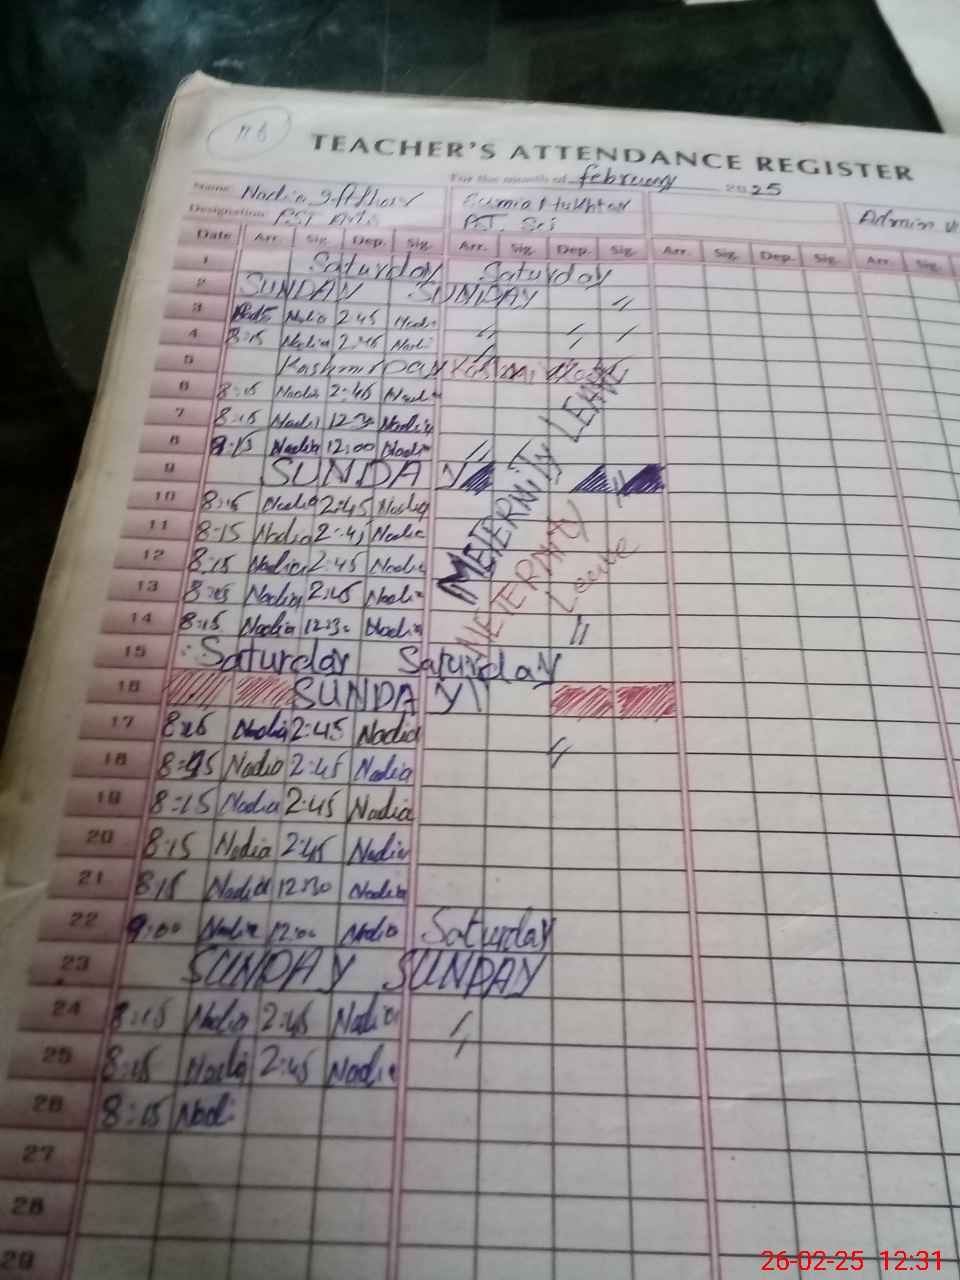 TEACHER'S ATTENDANCE REGISTER
For the month of february 2025
Name: Nadia Sumia Admin
Designation: PST
Date Arr. Sig. Dep. Sig. Arr. Sig. Dep. Sig. Arr. Sig. Dep. Sig. Arr. Sig.
1 Saturday Saturday
2 SUNDAY SUNDAY
3 2 45 "
4 8:15 Nadia 2:45 Nadi " " "
5 Kashmir Day
6 8:15 Nadia 2:45
7 8:15 Nadia 12:30 Nadia
8 9:15 Nadia 12:00 Nadia "
9 SUNDAY
10 8:15 Nadia 2:45 Nadia
11 8:15 Nadia 2:45 Nadia
12 8:15 Nadia 2:45 Nadia
13 8:15 Nadia 2:45 Nadia
14 8:15 Nadia 12:30 Nadia "
METERNITY LEAVE
METERNITY Leave
15 Saturday Saturday
16 SUNDAY "
17 8:15 Nadia 2:45 Nadia "
18 8:15 Nadia 2:45 Nadia
19 8:15 Nadia 2:45 Nadia
20 8:15 Nadia 2:45 Nadia
21 8:15 Nadia 12:30 Nadia
22 9:00 Nadia 12:00 Nadia Saturday
23 SUNDAY SUNDAY
24 8:15 Nadia 2:45 Nadia "
25 8:15 Nadia 2:45 Nadia
26 8:15 Nadi
27
28
29
26-02-25 12:31